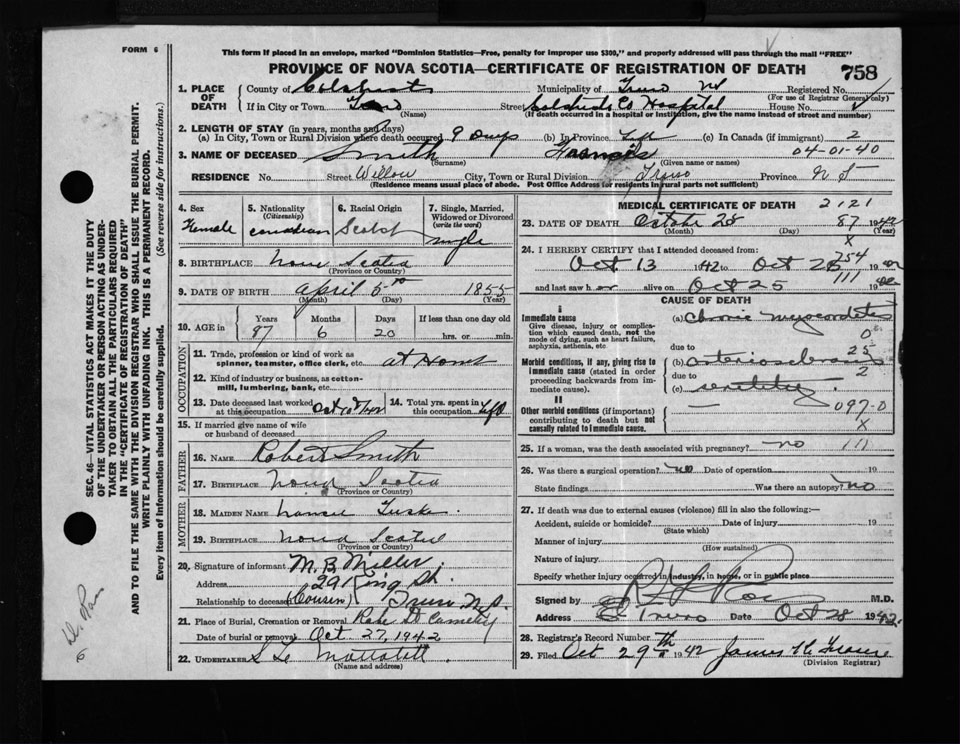 FORM 6
This form if placed in an envelope, marked "Dominion Statistics—Free, penalty for improper use $300," and properly addressed will pass through the mail "FREE"
PROVINCE OF NOVA SCOTIA—CERTIFICATE OF REGISTRATION OF DEATH
758
1. PLACE OF DEATH
County of Colchester
Municipality of Truro
Registered No.
(For use of Registrar General only)
If in City or Town
(Name)
Street Colchester Co Hospital
House No.
(If death occurred in a hospital or institution, give the name instead of street and number)
2. LENGTH OF STAY (in years, months and days)
(a) In City, Town or Rural Division where death occurred 9 Days (b) In Province Life (c) In Canada (if immigrant) 2
3. NAME OF DECEASED Smith Francis 04-01-40
(Surname) (Given name or names)
RESIDENCE No. Street Willow City, Town or Rural Division Truro Province N S
(Residence means usual place of abode. Post Office Address for residents in rural parts not sufficient)
4. Sex
Female
5. Nationality
(Citizenship)
Canadian
6. Racial Origin
Scotch
7. Single, Married, Widowed or Divorced
(write the word)
single
8. BIRTHPLACE Nova Scotia
(Province or Country)
9. DATE OF BIRTH April 5th 1855
(Month) (Day) (Year)
10. AGE in
Years Months Days If less than one day
87 6 20 hrs. or min.
OCCUPATION
11. Trade, profession or kind of work as spinner, teamster, office clerk, etc. at Home
12. Kind of industry or business, as cotton-mill, lumbering, bank, etc.
13. Date deceased last worked at this occupation
14. Total yrs. spent in this occupation Life
15. If married give name of wife or husband of deceased
FATHER
16. NAME Robert Smith
17. BIRTHPLACE Nova Scotia
(Province or Country)
MOTHER
18. MAIDEN NAME
19. BIRTHPLACE Nova Scotia
(Province or Country)
20. Signature of informant M. B. Miller
Address 29 King St.
Relationship to deceased (Cousin) Truro N.S.
21. Place of Burial, Cremation or Removal Cemetery
Date of burial or removal Oct. 27, 1942
22. UNDERTAKER
(Name and address)
MEDICAL CERTIFICATE OF DEATH 2121
23. DATE OF DEATH 87 1942
(Month) (Day) (Year)
X
24. I HEREBY CERTIFY that I attended deceased from:
Oct 13 1942 to Oct 19 254
and last saw h alive on Oct 25 111 19
CAUSE OF DEATH
Immediate cause
Give disease, injury or complication which caused death, not the mode of dying, such as heart failure, asphyxia, asthenia, etc.
(a) Chronic myocarditis
0
due to
25
Morbid conditions, if any, giving rise to immediate cause (stated in order proceeding backwards from immediate cause).
(b) arteriosclerosis
2
due to
(c) senility
II
Other morbid conditions (if important) contributing to death but not causally related to immediate cause.
097-0
X
25. If a woman, was the death associated with pregnancy? no 111
26. Was there a surgical operation? no Date of operation 19
State findings Was there an autopsy? no
27. If death was due to external causes (violence) fill in also the following:—
Accident, suicide or homicide? Date of injury 19
(State which)
Manner of injury
(How sustained)
Nature of injury
Specify whether injury occurred in industry, in home, or in public place
Signed by M.D.
Address Truro Date Oct 28 1942
28. Registrar's Record Number
29. Filed Oct 29th 1942 James
(Division Registrar)
SEC. 46—VITAL STATISTICS ACT MAKES IT THE DUTY OF THE UNDERTAKER OR PERSON ACTING AS UNDERTAKER TO OBTAIN ALL THE PARTICULARS REQUIRED IN THE "CERTIFICATE OF REGISTRATION OF DEATH" AND TO FILE THE SAME WITH THE DIVISION REGISTRAR WHO SHALL ISSUE THE BURIAL PERMIT.
WRITE PLAINLY WITH UNFADING INK. THIS IS A PERMANENT RECORD.
Every item of Information should be carefully supplied. (See reverse side for instructions.)